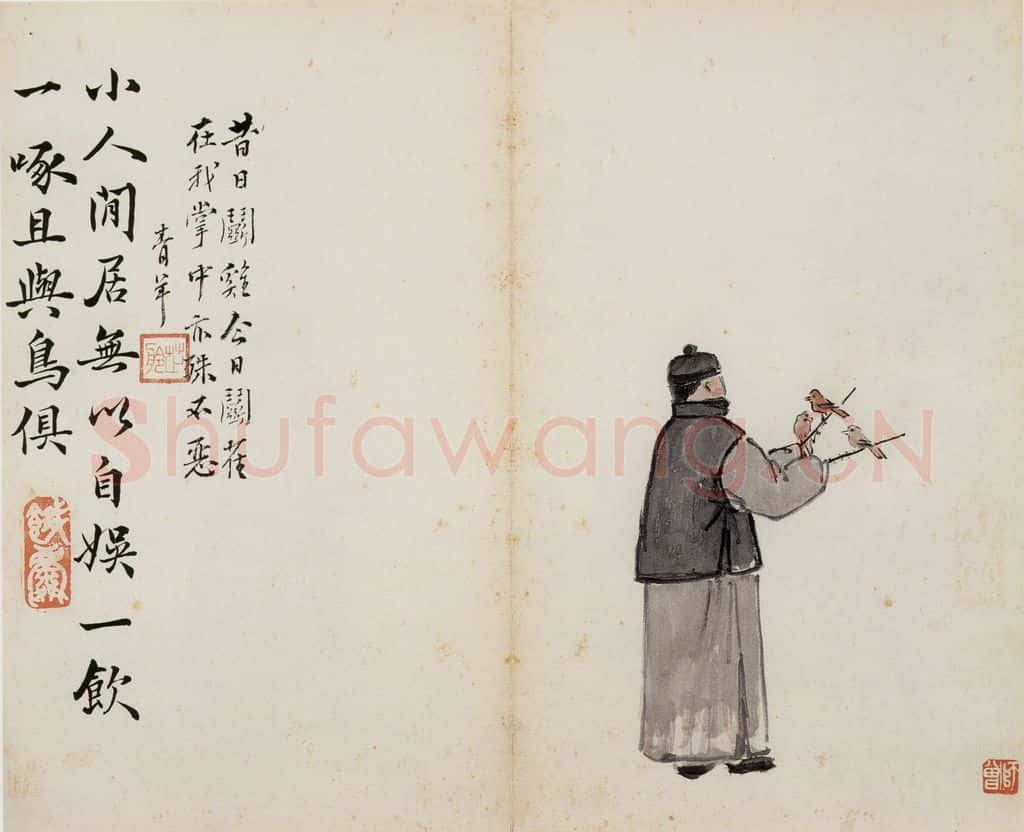 昔日鬭雞今日鬭雀
在我掌中亦殊不惡
青羊
小人閒居無以自娛一飲
一啄且與鳥俱
師曾
Shufawang.CN